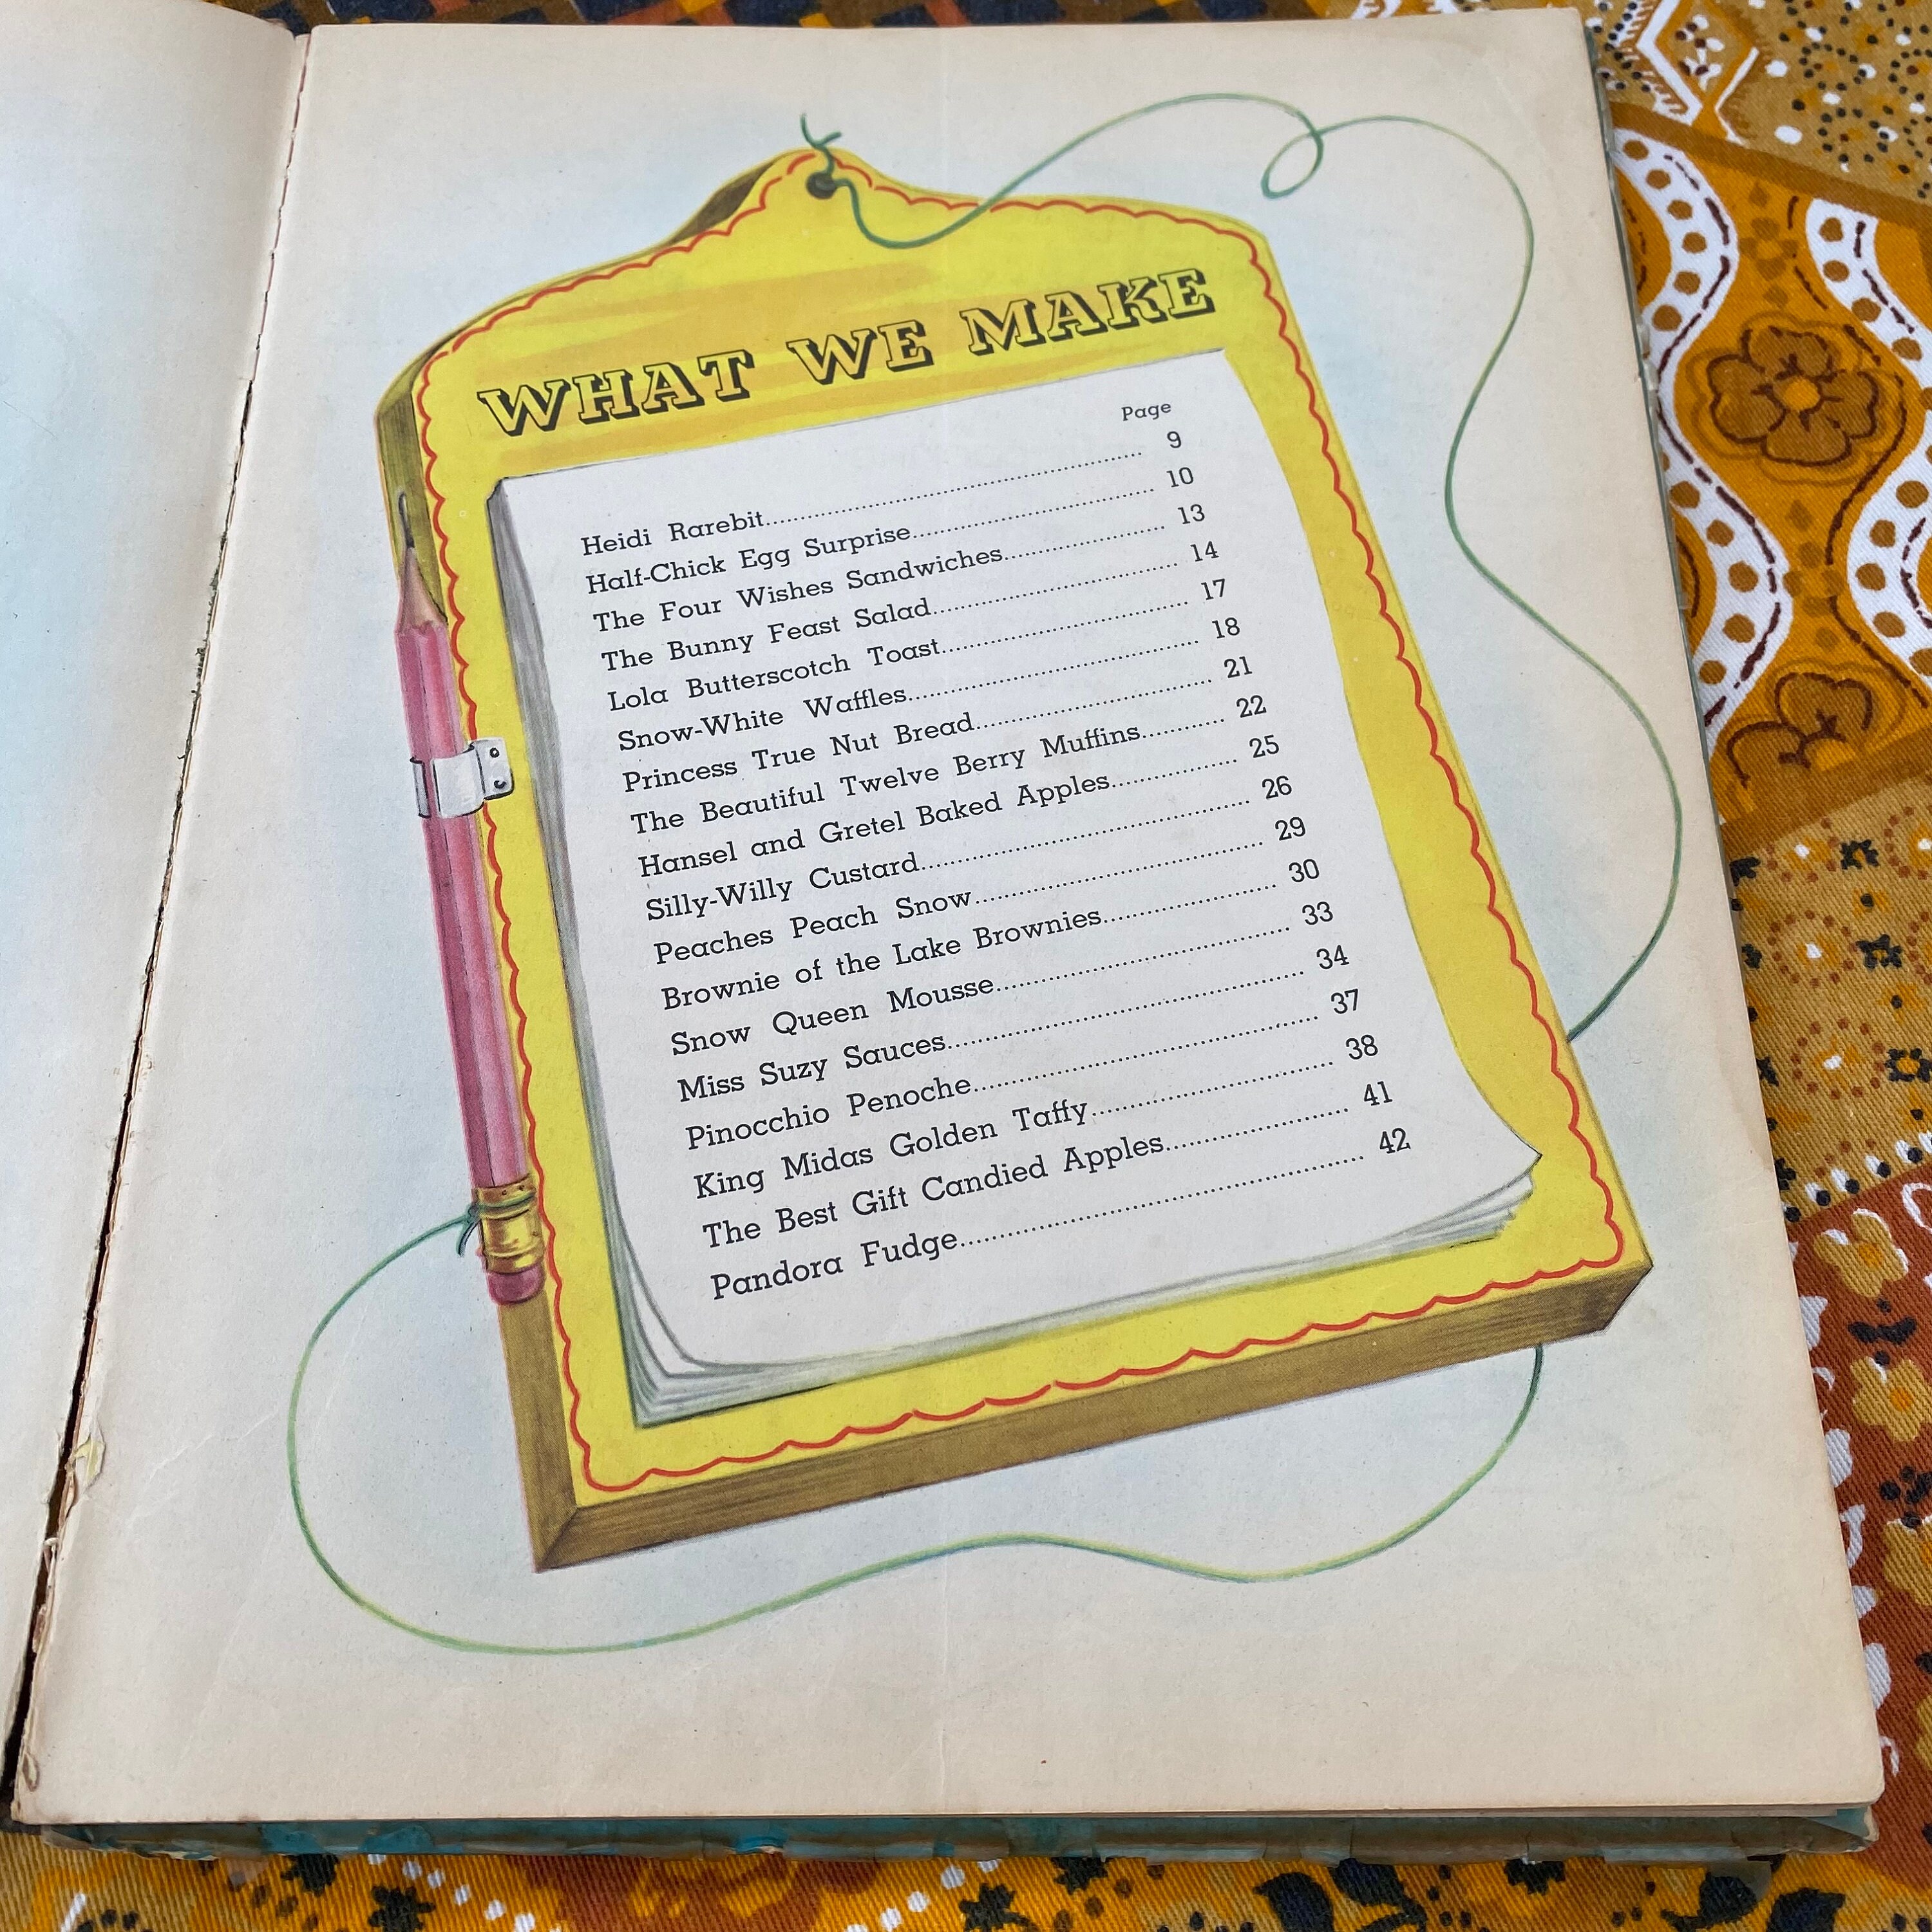 WHAT WE MAKE
Page
Heidi Rarebit.......... 9
Half-Chick Egg Surprise.......... 10
The Four Wishes Sandwiches.......... 13
The Bunny Feast Salad.......... 14
Lola Butterscotch Toast.......... 17
Snow-White Waffles.......... 18
Princess True Nut Bread.......... 21
The Beautiful Twelve Berry Muffins.......... 22
Hansel and Gretel Baked Apples.......... 25
Silly-Willy Custard.......... 26
Peaches Peach Snow.......... 29
Brownie of the Lake Brownies.......... 30
Snow Queen Mousse.......... 33
Miss Suzy Sauces.......... 34
Pinocchio Penoche.......... 37
King Midas Golden Taffy.......... 38
The Best Gift Candied Apples.......... 41
Pandora Fudge.......... 42